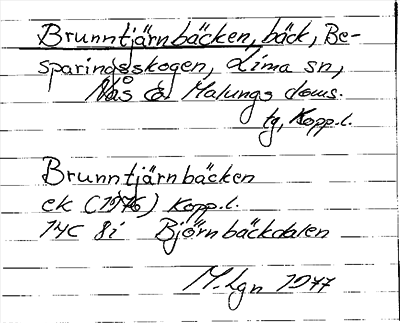 Brunntjärnbäcken, bäck, Be-
sparingsskogen, Lima sn,
Nås & Malungs doms.
tg, Kopp.l.
Brunntjärnbäcken
ek (1976) Kopp.l.
14C 8i Björnbäckdalen
M.Lgn 1977